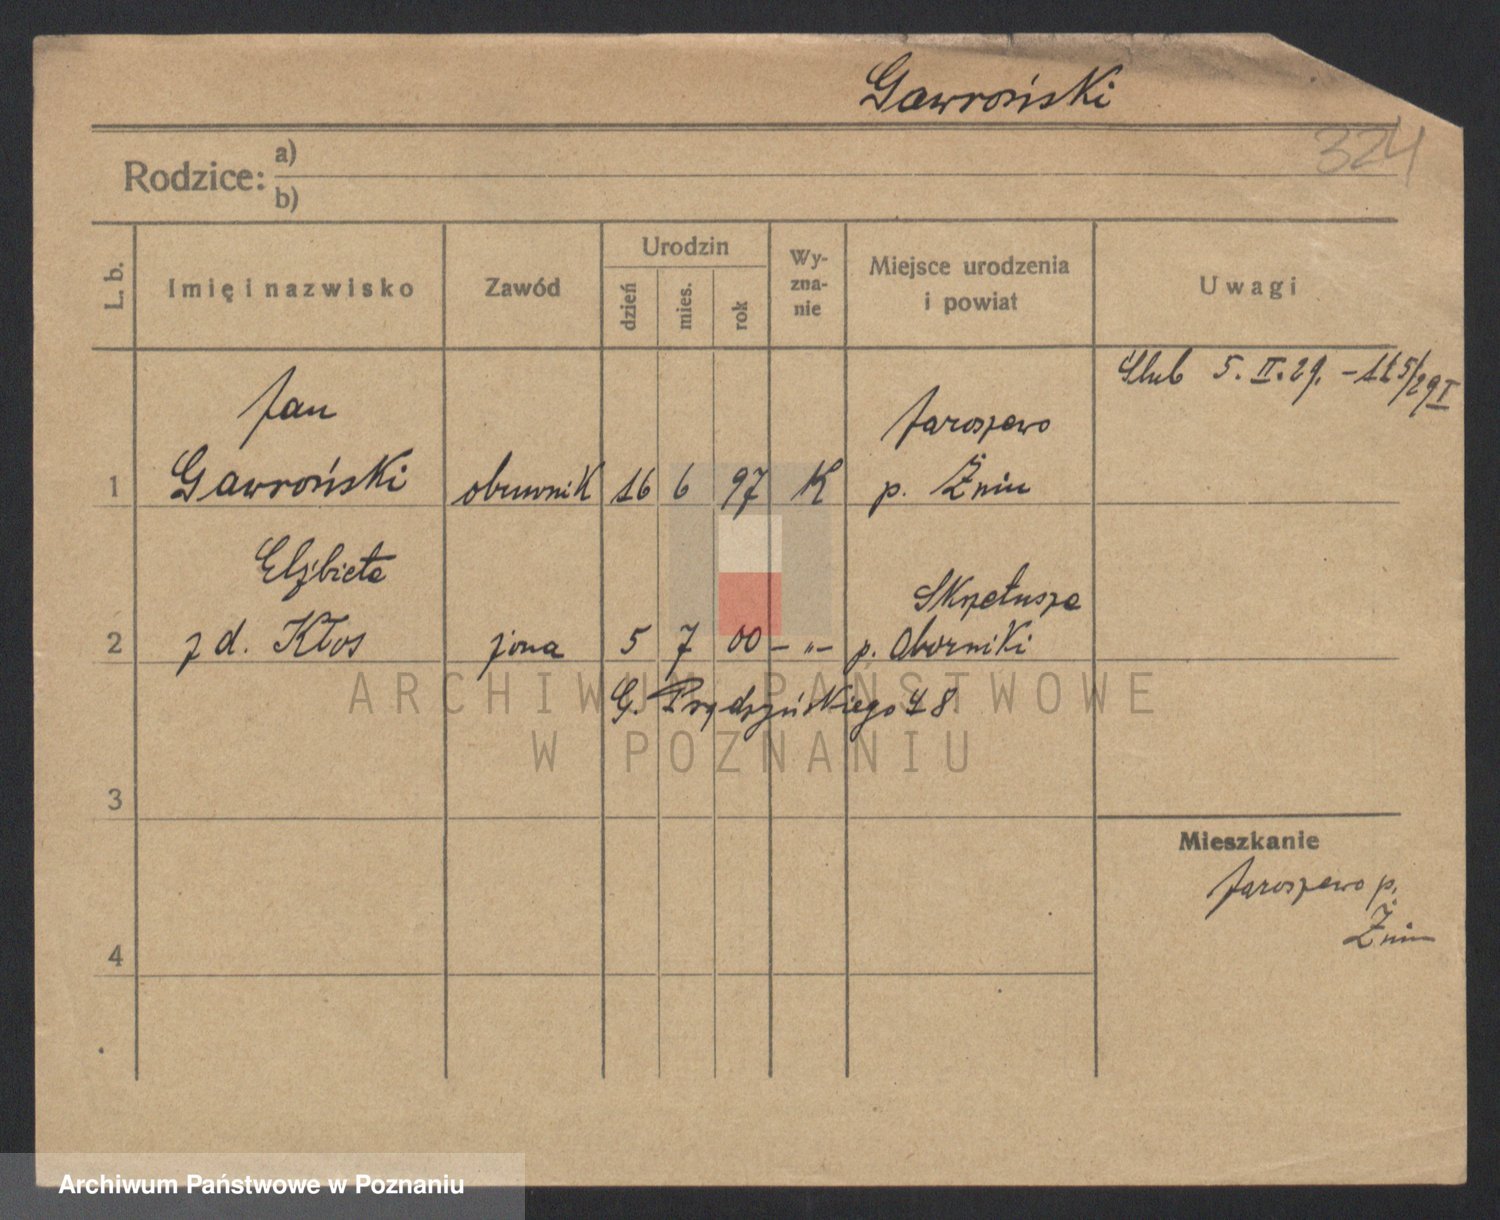 Gawroński
324
Rodzice: a)
b)
L. b.
Imię i nazwisko
Zawód
Urodzin
dzień
mies.
rok
Wy-
zna-
nie
Miejsce urodzenia
i powiat
Uwagi
Ślub 5. II. 29. – 115/29 I
Jan
Jaroszewo
1 Gawroński obuwnik 16 6 97 K p. Żnin
Elżbieta
Skrzetusze
2 z d. Kłos żona 5 7 00 – „ – p. Oborniki
G. Prądzyńskiego 48
3
Mieszkanie
Jaroszewo p.
Żnin
4
ARCHIWUM PAŃSTWOWE
W POZNANIU
Archiwum Państwowe w Poznaniu